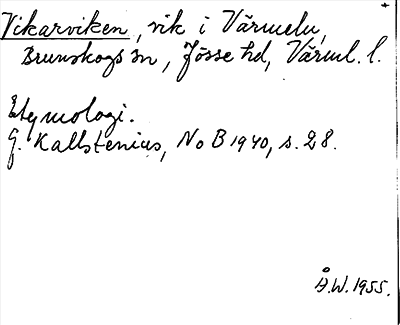 Vikarviken, vik i Värmeln,
Brunskogs sn, Jösse hd, Värml. l.
Etymologi.
G. Kallstenius, NoB 1940, s. 28.
Å.W. 1955.